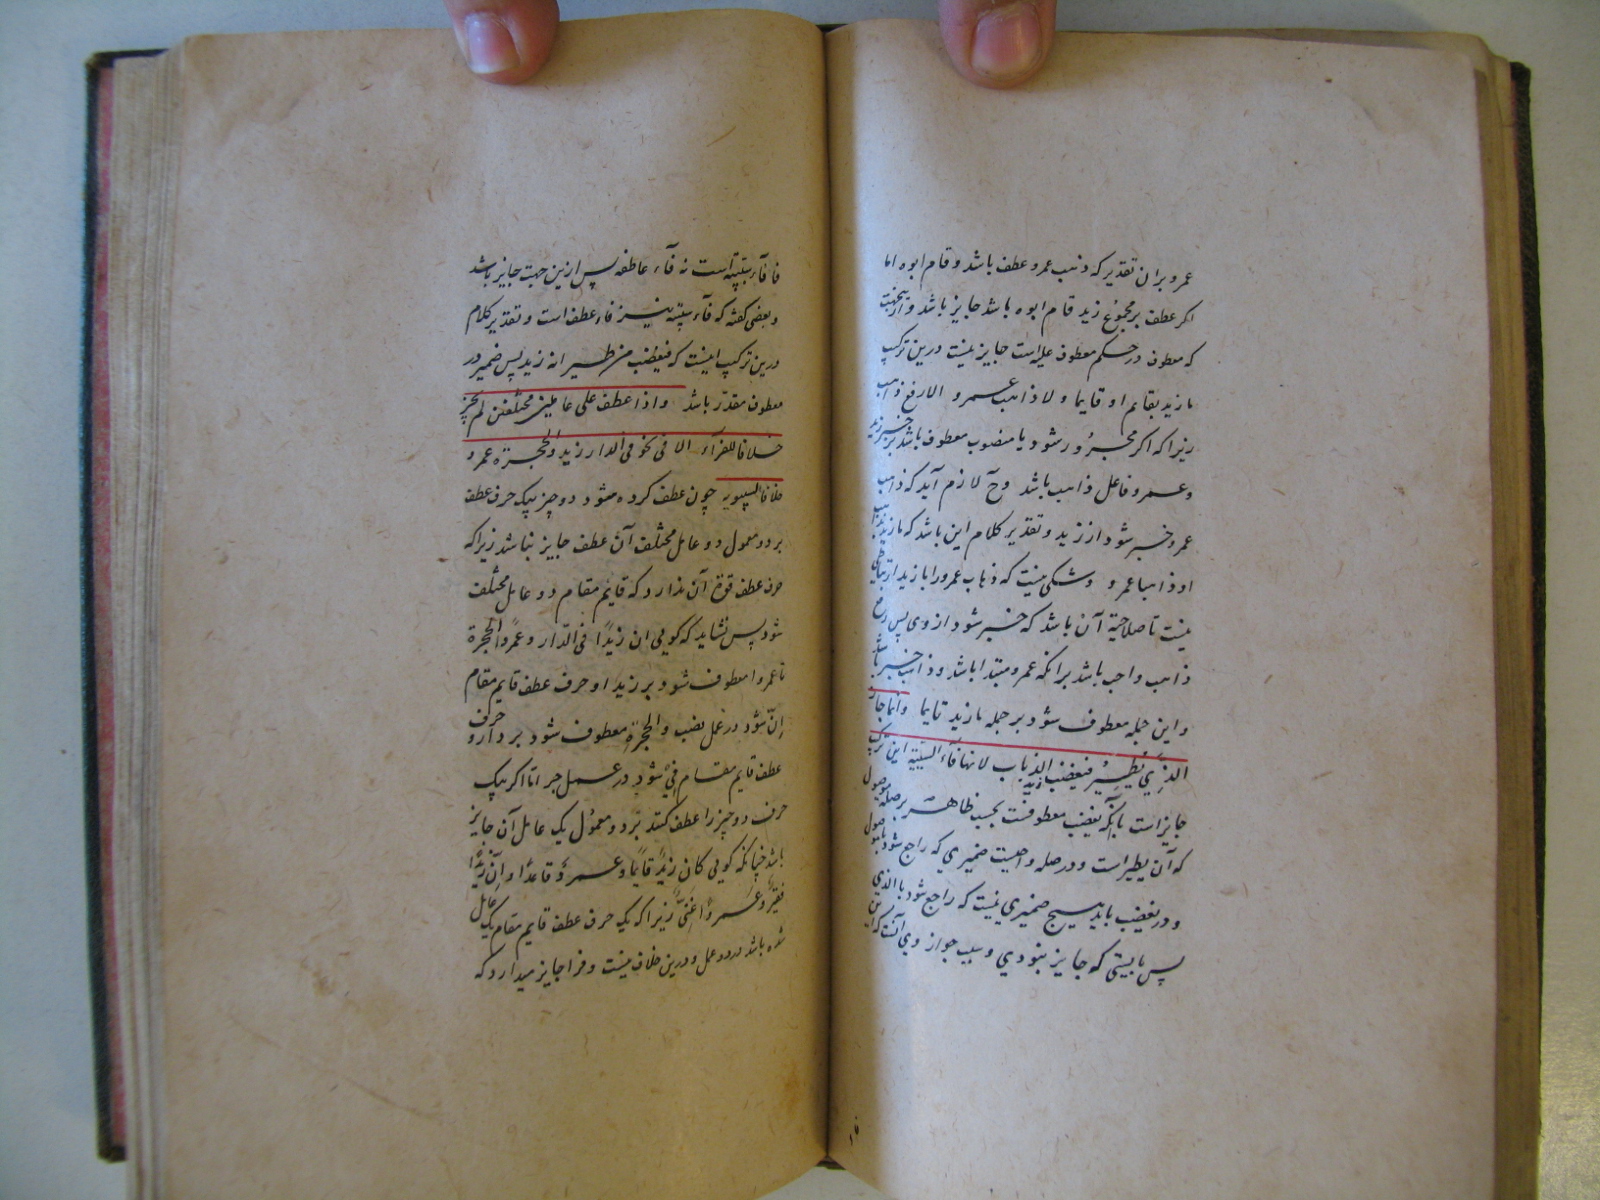 عمرو بران تقدیر که ذهب عمرو عطف باشد و قام ابوه اما
اکر عطف بر مجموع زید قام ابوه باشد جایز باشد و ازینجهت
که معطوف در حکم معطوف علیه است جایز نیست درین ترکیب
ما زید بقایم او قایما ولا ذاهب عمرو الا رفع ذاهب
زیرا که اکر مجرور شود یا منصوب معطوف باشد بر خبر زید
و عمرو فاعل ذاهب باشد وح لازم آید که ذاهب
عمرو خبر شود از زید و تقدیر کلام این باشد که ما زید بذاهب
او ذاهبا عمرو و شکی نیست که ذهاب عمرو را با زید ارتباطی
نیست تا صلاحیة آن باشد که خبر شود از وی پس رفع
ذاهب واجب باشد برانکه عمرو مبتدا باشد و ذاهب خبر باشد
و این جمله معطوف شود بر جمله ما زید قایما وانما جاز
الذی یطیر فیغضب زید الذباب لانها فآء السببیة این ترکیب
جایز است بآنکه یغضب معطوفست بحسب ظاهر بر صله موصول
که آن یطیر است و در صله واجبست ضمیری که راجع شود بموصول
و در یغضب باید هیچ ضمیری نیست که راجع شود با الذی
پس بایستی که جایز نبودی و سبب جواز وی آنست که این
۱۶
فا فآء سببیه است نه فآء عاطفه پس ازین جهت جایز باشد
و بعضی کفته که فآء سببیه نیز فاء عطف است و تقدیر کلام
درین ترکیب اینست که فیغضب من طیرانه زید پس ضمیر در
معطوف مقدر باشد واذا عطف علی عاملین مختلفین لم یجز
خلافا للفرآء الا فی نحو فی الدار زید والحجرة عمرو
خلافا لسیبویه چون عطف کرده شود دو چیز بیک حرف عطف
بر دو معمول دو عامل مختلف آن عطف جایز نباشد زیرا که
حرف عطف قوة آن ندارد که قایم مقام دو عامل مختلف
شود پس نشاید که کویی ان زیدا فی الدار و عمرو الحجرة
تا عمروا معطوف شود بر زید او حرف عطف قایم مقام
إنّ شود در عمل نصب و الحجرة معطوف شود بر دار و حرف
عطف قایم مقام فی شود در عمل جر اما اکر بیک
حرف دو چیز را عطف کنند بر دو معمول یک عامل آن جایز
باشد چنانکه کویی کان زید قایما و عمرو قاعدا و إنّ زیدا
فقیر و عمرا غنی زیرا که یک حرف عطف قایم مقام یک عامل
شده باشد در دو عمل و درین خلاف نیست و فرا جایز میدارد که